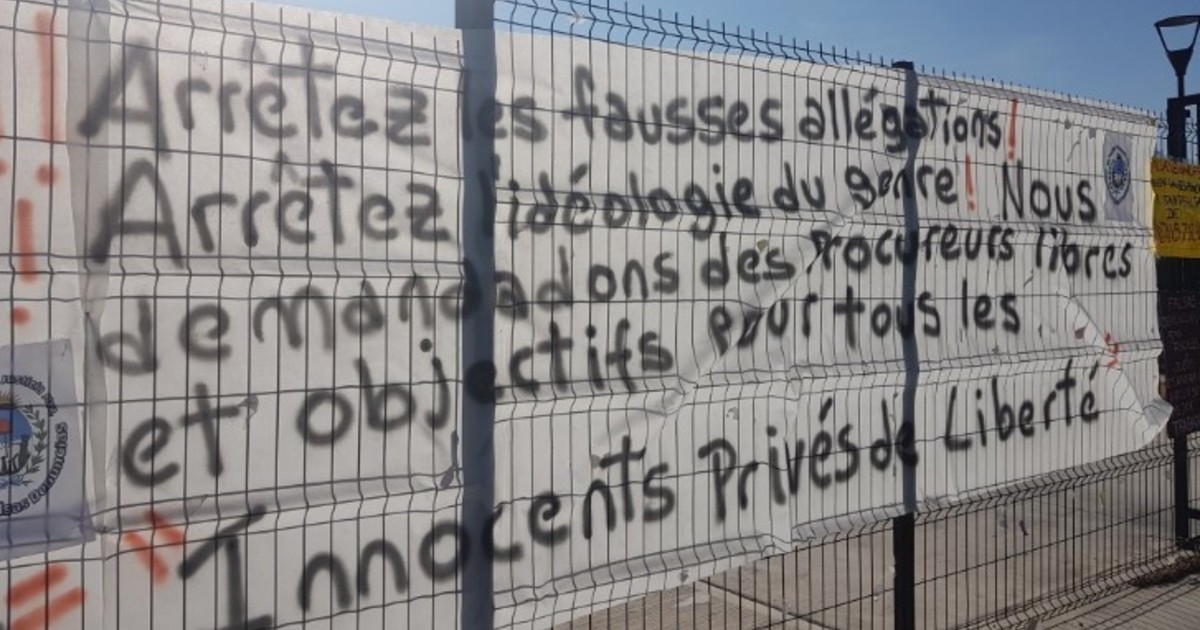 Arrêtez les fausses allégations!
Arrêtez l'idéologie du genre! Nous
demandadons des procureurs libres
et objectifs pour tous les
"Innocents Privés de Liberté"